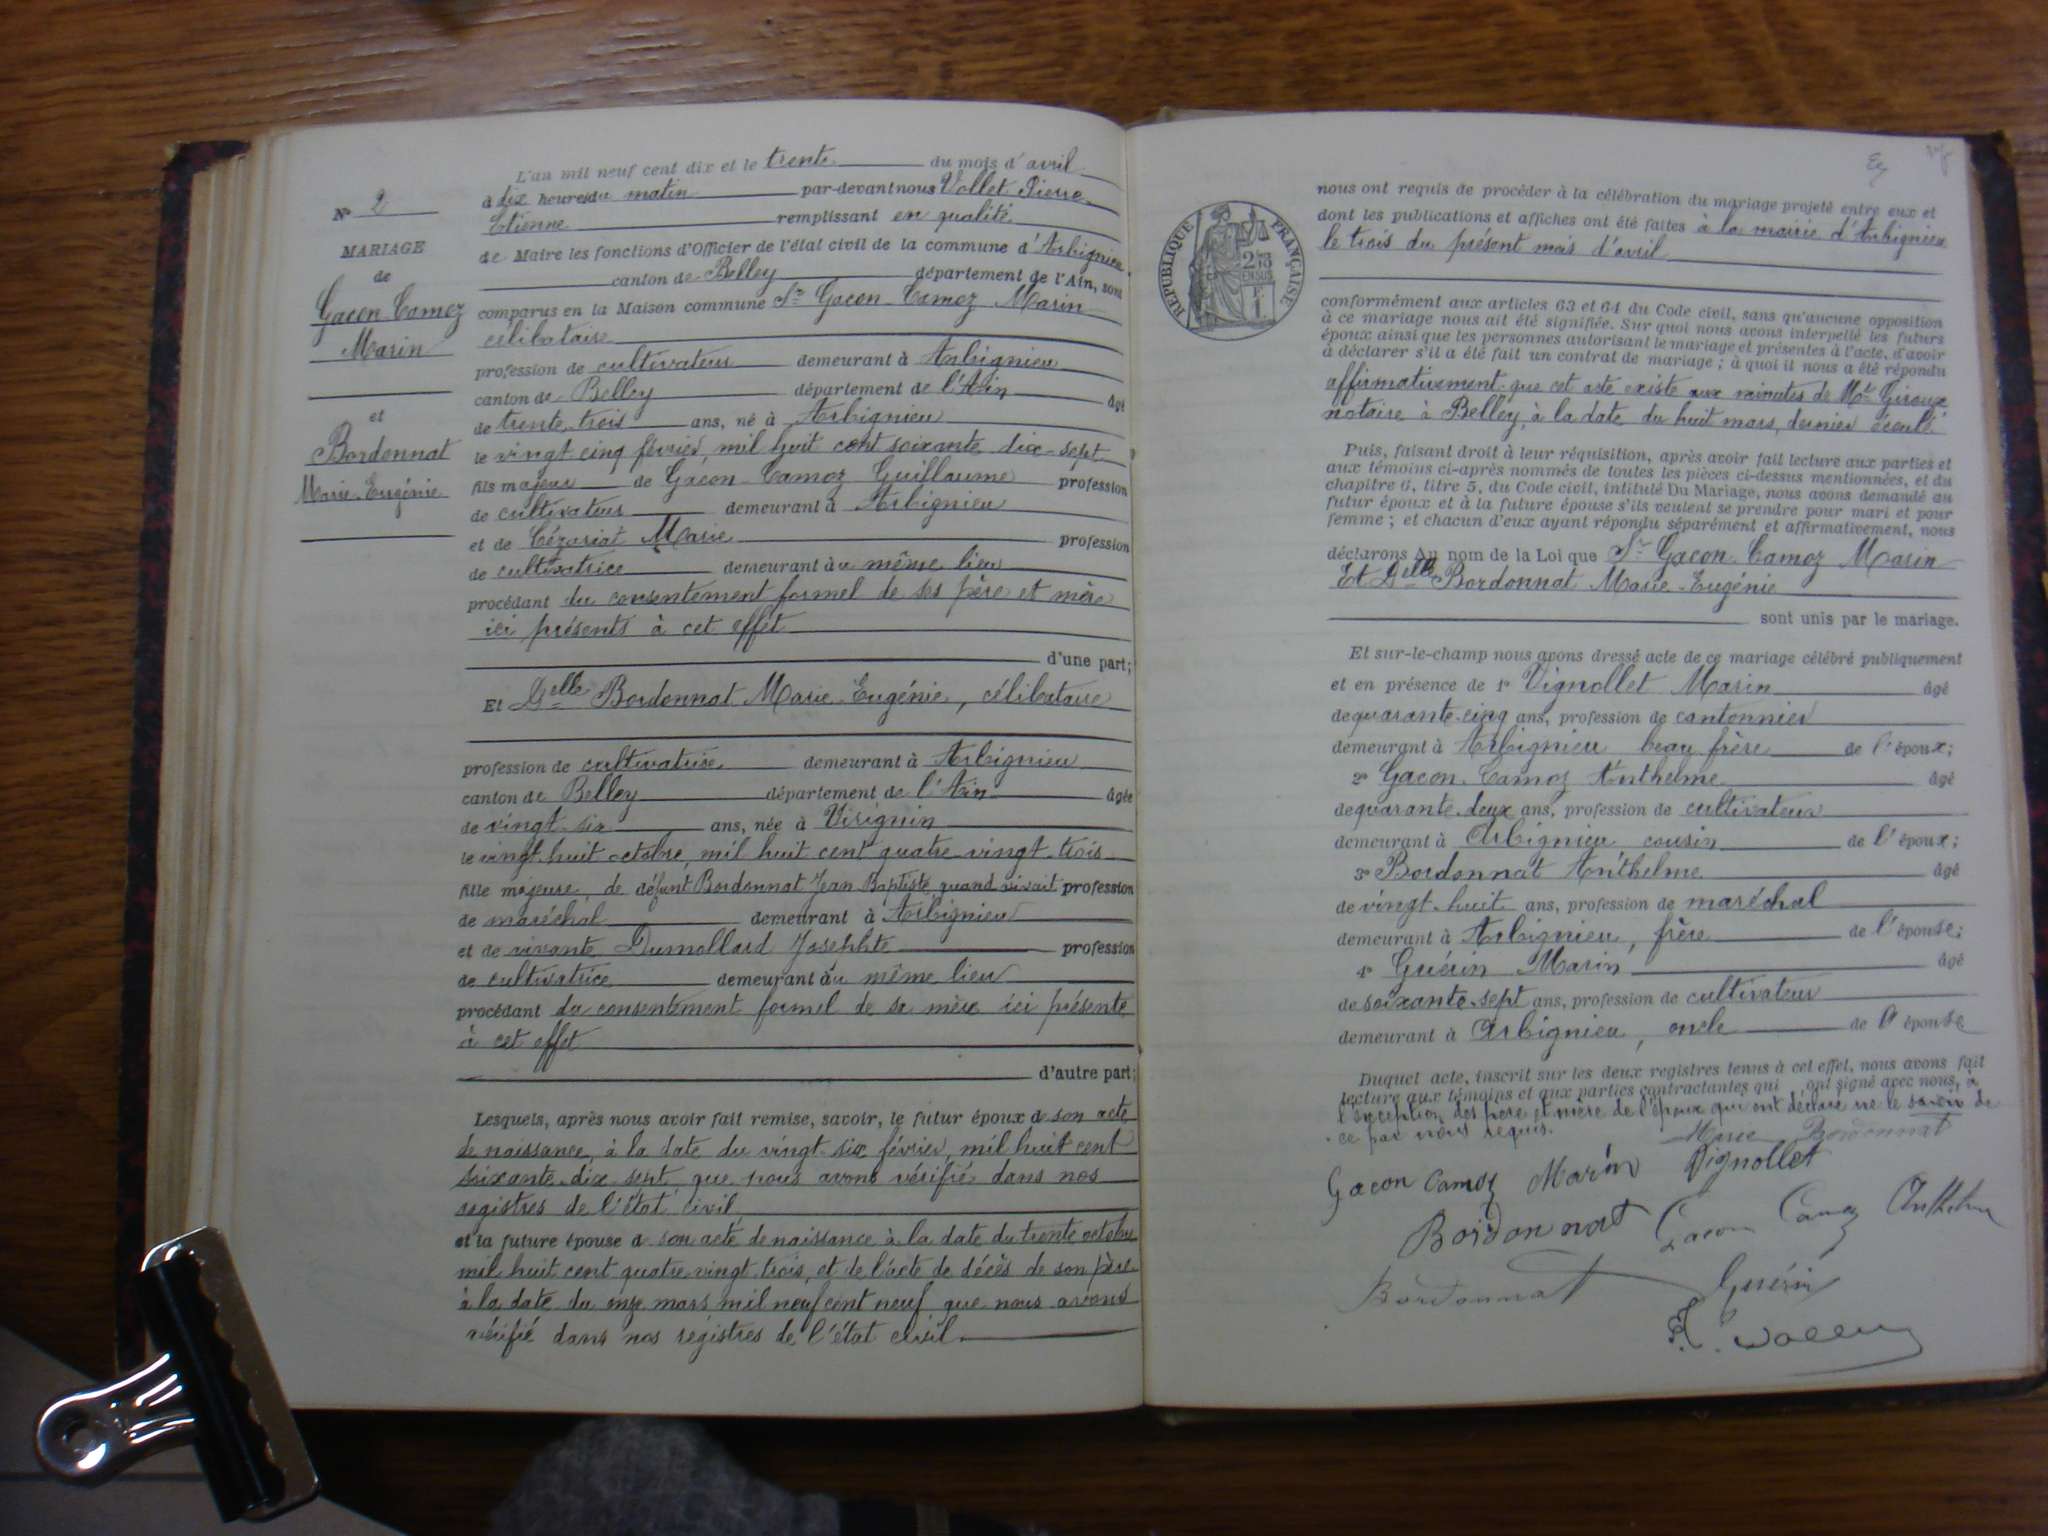 L'an mil neuf cent dix et le trente du mois d'avril
à dix heures du matin par-devant nous Vollet Pierre
Etienne remplissant en qualité
de Maire les fonctions d'Officier de l'état civil de la commune d'Arbignieu
canton de Belley département de l'Ain, sont
comparus en la Maison commune Sr Gacon-Camoz Marin
célibataire
profession de cultivateur demeurant à Arbignieu
canton de Belley département de l'Ain âgé
de trente trois ans, né à Arbignieu
le vingt cinq février, mil huit cent soixante dix-sept
fils majeur de Gacon-Camoz Guillaume profession
de cultivateur demeurant à Arbignieu
et de Cézariat Marie profession
de cultivatrice demeurant au même lieu
procédant du consentement formel de ses père et mère
ici présents à cet effet
d'une part;
Et Delle Bordonnat Marie-Eugénie, célibataire
profession de cultivatrice demeurant à Arbignieu
canton de Belley département de l'Ain âgée
de vingt-six ans, née à Virignin
le vingt-huit octobre, mil huit cent quatre-vingt-trois
fille majeure, de défunt Bordonnat Jean Baptiste, quand vivait profession
de maréchal demeurant à Arbignieu
et de vivante Dumollard Josephte profession
de cultivatrice demeurant au même lieu
procédant du consentement formel de sa mère ici présente
à cet effet
d'autre part;
Lesquels, après nous avoir fait remise, savoir, le futur époux a son acte
de naissance, à la date du vingt-six février, mil huit cent
soixante-dix-sept que nous avons vérifié dans nos
registres de l'état civil
et la future épouse a son acte de naissance à la date du trente octobre
mil huit cent quatre-vingt trois, et de l'acte de décès de son père
à la date du onze mars mil neuf cent neuf que nous avons
vérifié dans nos registres de l'état civil.
No 2
MARIAGE
de
Gacon-Camoz
Marin
et
Bordonnat
Marie-Eugénie
RÉPUBLIQUE FRANÇAISE
nous ont requis de procéder à la célébration du mariage projeté entre eux et
dont les publications et affiches ont été faites à la mairie d'Arbignieu
le trois du présent mois d'avril
conformément aux articles 63 et 64 du Code civil, sans qu'aucune opposition
à ce mariage nous ait été signifiée. Sur quoi nous avons interpellé les futurs
époux ainsi que les personnes autorisant le mariage et présentes à l'acte, d'avoir
à déclarer s'il a été fait un contrat de mariage; à quoi il nous a été répondu
affirmativement que cet acte existe aux minutes de Me Giroux
notaire à Belley, à la date du huit mars, dernier écoulé
Puis, faisant droit à leur réquisition, après avoir fait lecture aux parties et
aux témoins ci-après nommés de toutes les pièces ci-dessus mentionnées, et du
chapitre 6, titre 5, du Code civil, intitulé Du Mariage, nous avons demandé au
futur époux et à la future épouse s'ils veulent se prendre pour mari et pour
femme; et chacun d'eux ayant répondu séparément et affirmativement, nous
déclarons Au nom de la Loi que Sr Gacon-Camoz Marin
Et Delle Bordonnat Marie-Eugénie
sont unis par le mariage.
Et sur-le-champ nous avons dressé acte de ce mariage célébré publiquement
et en présence de 1º Vignollet Marin âgé
de quarante-cinq ans, profession de cantonnier
demeurant à Arbignieu beau frère de l'époux;
2º Gacon-Camoz Anthelme âgé
de quarante-deux ans, profession de cultivateur
demeurant à Arbignieu cousin de l'époux;
3º Bordonnat Anthelme âgé
de vingt-huit ans, profession de maréchal
demeurant à Arbignieu, frère de l'épouse;
4º Guérin Marin âgé
de soixante-sept ans, profession de cultivateur
demeurant à Arbignieu, oncle de l'épouse
Duquel acte, inscrit sur les deux registres tenus à cet effet, nous avons fait
lecture aux témoins et aux parties contractantes qui ont signé avec nous, à
l'exception des père et mère de l'époux qui ont déclaré ne le savoir de
ce par nous requis.
Marie Bordonnat
Gacon Camoz Marin Vignollet
Bordonnat Gacon Camoz Anthelme
Bordonnat Guérin